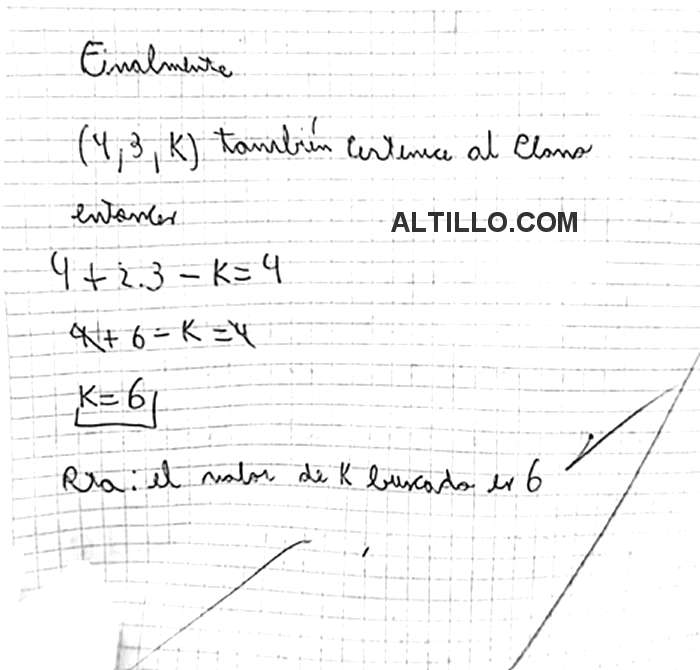 Finalmente
(4,3,K) también pertenece al plano
entonces
ALTILLO.COM
4+2.3-K=4
4+6-K=4
K=6
Rta: el valor de K buscado es 6